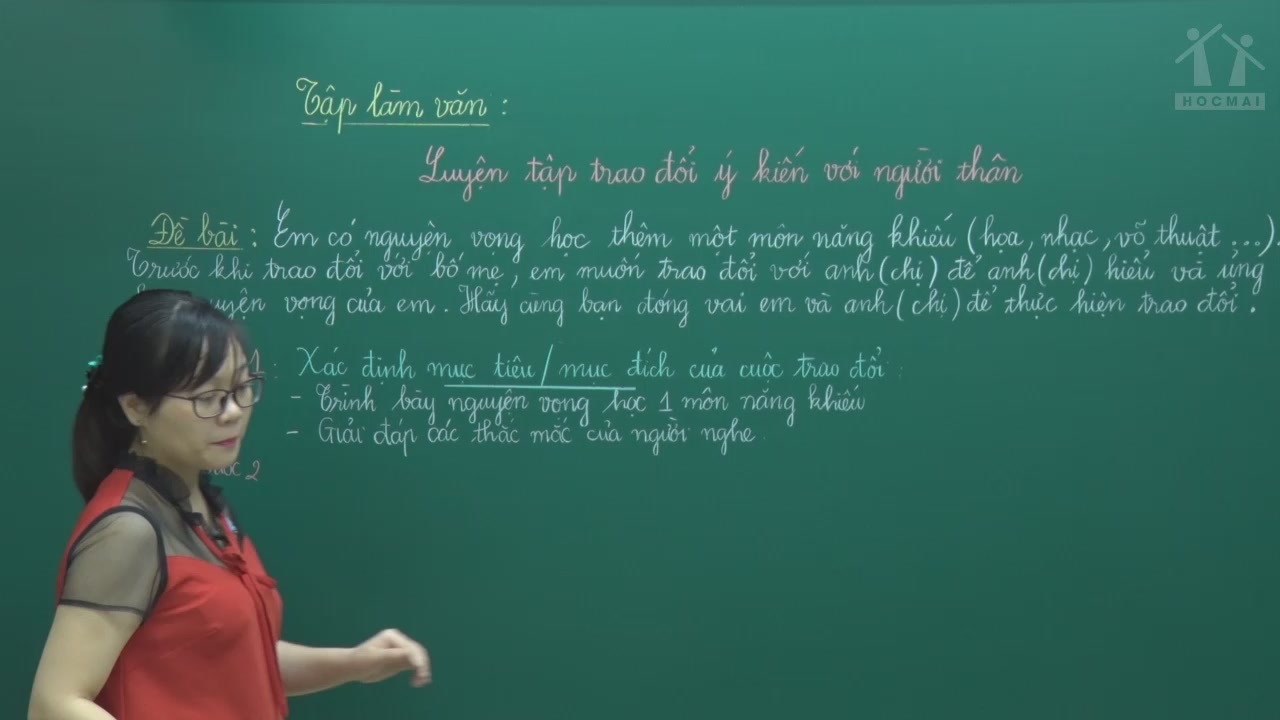 HOCMAI
Tập làm văn :
Luyện tập trao đổi ý kiến với người thân
Đề bài : Em có nguyện vọng học thêm một môn năng khiếu (họa, nhạc, võ thuật ...)
Trước khi trao đổi với bố mẹ, em muốn trao đổi với anh (chị) để anh (chị) hiểu và ủng
vọng của em. Hãy cùng bạn đóng vai em và anh (chị) để thực hiện trao đổi.
1: Xác định mục tiêu / mục đích của cuộc trao đổi:
- Trình bày nguyện vọng học 1 môn năng khiếu
- Giải đáp các thắc mắc của người nghe.
2